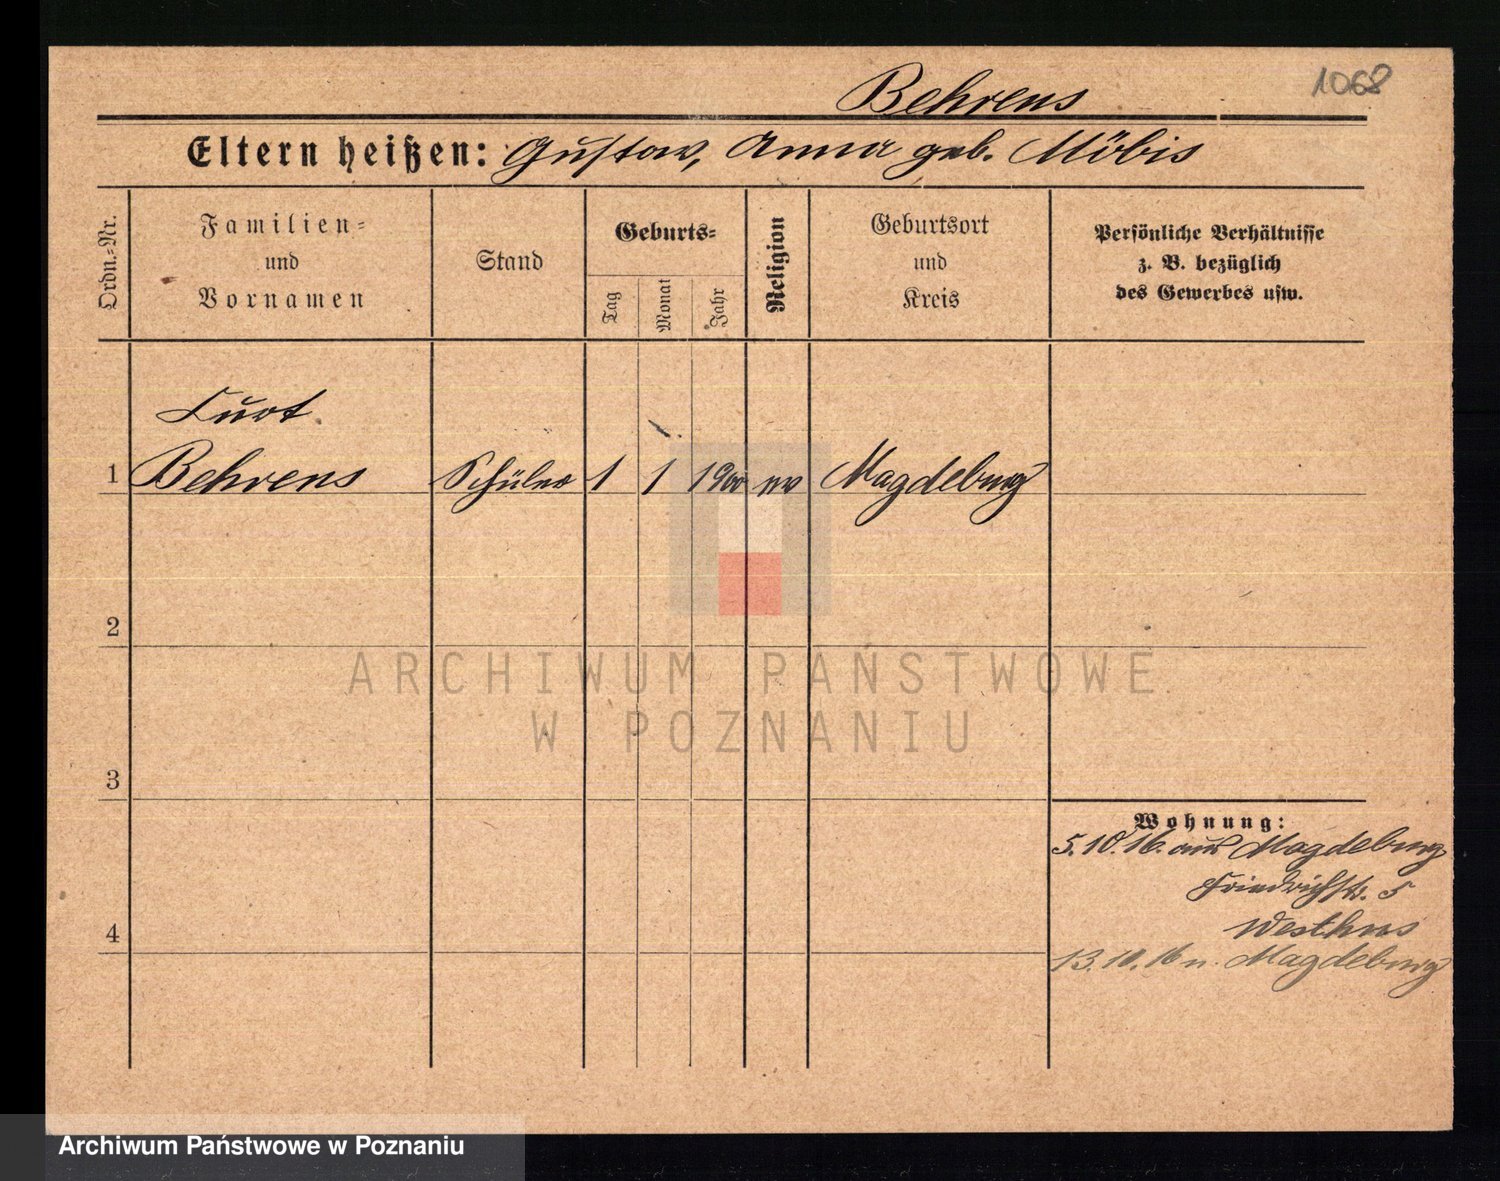 1068
Behrens
Eltern heißen: Gustav, Anna geb. Möbis
Ordn.=Nr.
Familien=
und
Vornamen
Stand
Geburts=
Tag
Monat
Jahr
Religion
Geburtsort
und
Kreis
Persönliche Verhältnisse
z. B. bezüglich
des Gewerbes usw.
Curt
1 Behrens Schüler 1 1 1900 ev Magdeburg
2
ARCHIWUM PAŃSTWOWE
W POZNANIU
3
Wohnung:
5.10.16. aus Magdeburg
Friedrichstr. 5
13.10.16 n. Magdeburg
4
Archiwum Państwowe w Poznaniu